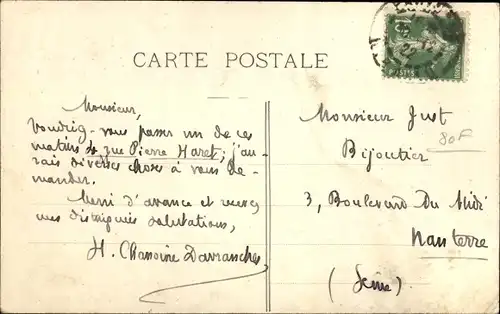 CARTE POSTALE
Monsieur,
Voudriez-vous passer un de ces
matins 4, rue Pierre Haret; j'au-
rais diverses choses à vous de-
mander.
Merci d'avance et recevez
mes distinguées salutations,
H. Chanoine Davranches
Monsieur Just
Bijoutier
3, Boulevard Du Midi
Nanterre
(Seine)
80F
15